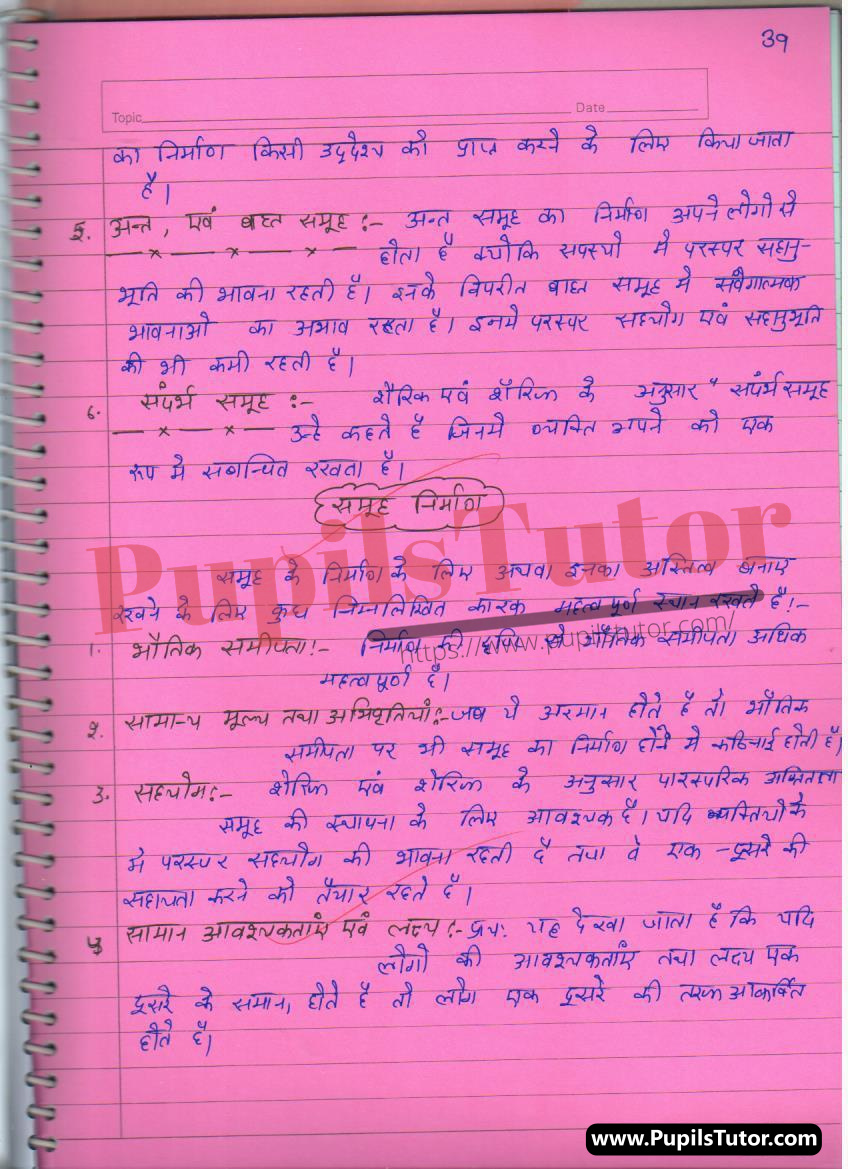 39
Topic
Date
का निर्माण किसी उद्देश्य को प्राप्त करने के लिए किया जाता
है।
5. अन्त, एवं बाह्य समूह :- अन्त समूह का निर्माण अपने लोगो से
होता है क्योकि सपस्यो मे परस्पर सहानु-
भूति की भावना रहती है। इनके विपरीत बाह्य समूह मे संवेगात्मक
भावनाओ का अभाव रहता है। इनमे परस्पर सहयोग एवं सहानुभूति
की भी कमी रहती है।
6. संदर्भ समूह :- शैरिफ एवं शैरिफ के अनुसार " संदर्भ समूह
उन्हे कहते है जिनमे व्यक्ति अपने को एक
रूप मे सबान्धित रखता है।
समूह निर्माण
PupilsTutor
समूह के निर्माण के लिए अथवा इनका अस्तित्व बनाए
रखने के लिए कुछ निम्नलिखित कारक महत्वपूर्ण स्थान रखते है।-
https://www.pupilstutor.com/
1. भौतिक समीपता:- निर्माण की दृष्टि से भौतिक समीपता अधिक
महत्वपूर्ण है।
2. सामान्य मूल्य तथा अभिवृतियाँ:- जब ये असमान होते है तो भौतिक
समीपता पर भी समूह का निर्माण होने मे कठिनाई होती है।
3. सहयोग:- शेरिफ एवं शेरिफ के अनुसार पारस्परिक
समूह की स्थापना के लिए आवश्यक है। यदि व्यक्तियो के
मे परस्पर सहयोग की भावना रहती है तथा वे एक - दूसरे की
सहायता करने को तैयार रहते है।
4 सामान आवश्यकताएं एवं लक्ष्य :- प्रय: यह देखा जाता है कि यदि
लोगो की आवश्यकताएं तथा लक्ष्य एक
दूसरे के समान, होते है तो लोग एक दूसरे की तरफ आकर्षित
होते है।
www.PupilsTutor.com